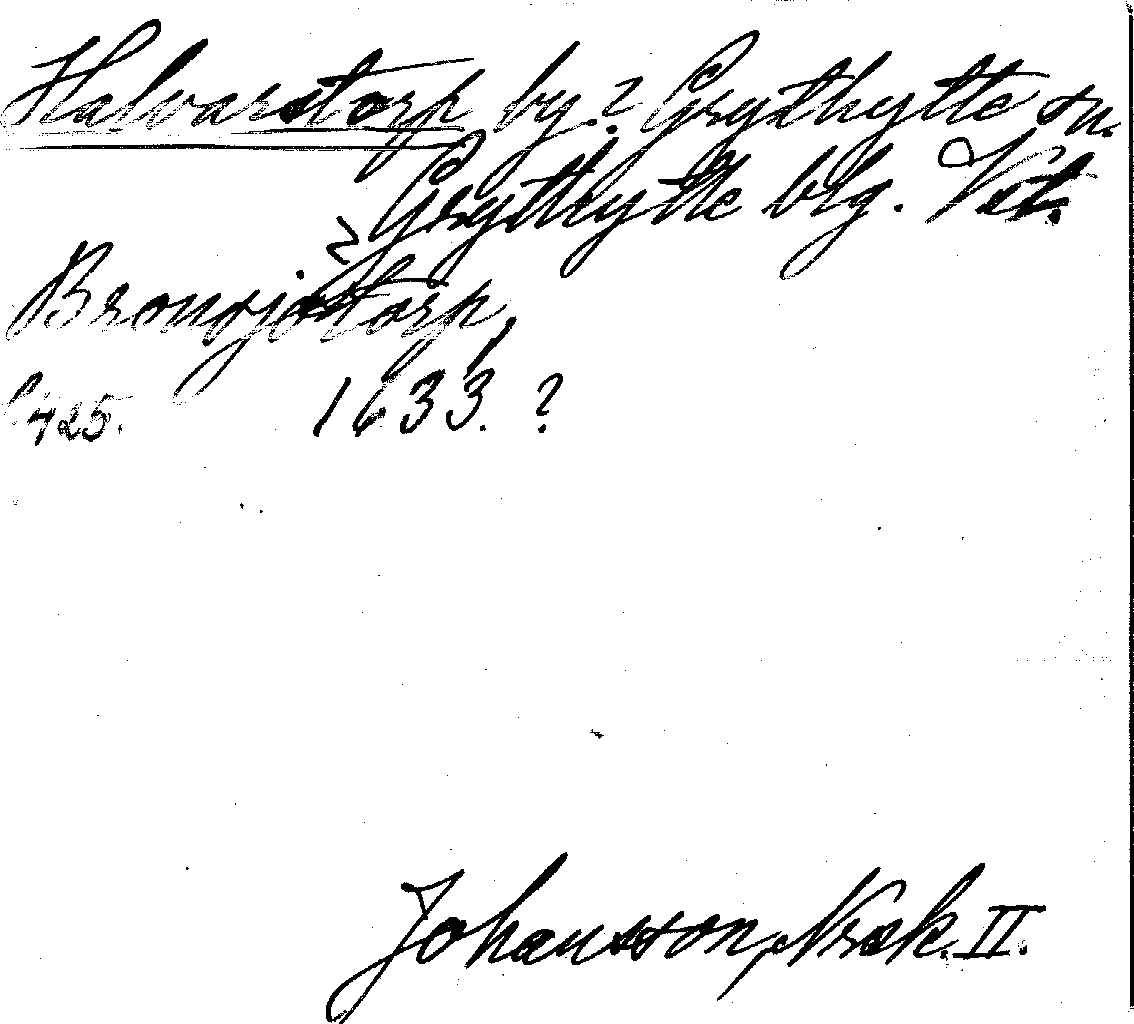 Halvarstorp by? Grythytte sn.
Grythytte blg. Vstl.
Bronäjstorp,
425. 1633. ?
Johansson, Norak. II.